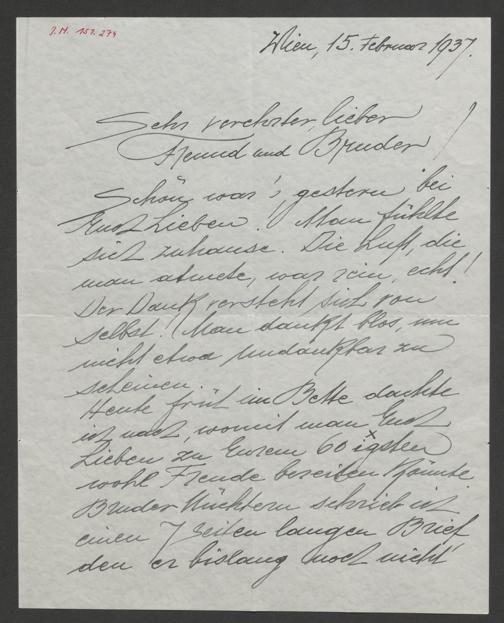 J.N. 151.274
Wien, 15. Februar 1937.
Sehr verehrter, lieber
Freund und Bruder!
Schön war's gestern bei
Euch Lieben! Man fühlte
sich zuhause. Die Luft, die
man atmete, war rein, echt!
Der Dank versteht sich von
selbst! Man dankt blos, um
nicht etwa undankbar zu
scheinen.
Heute früh im Bette dachte
ich nach, womit man Euch
Lieben zu Eurem 60 igsten
wohl Freude bereiten könnte.
Bruder Nüchtern schrieb ich
einen 7 Seiten langen Brief
den er bislang noch nicht